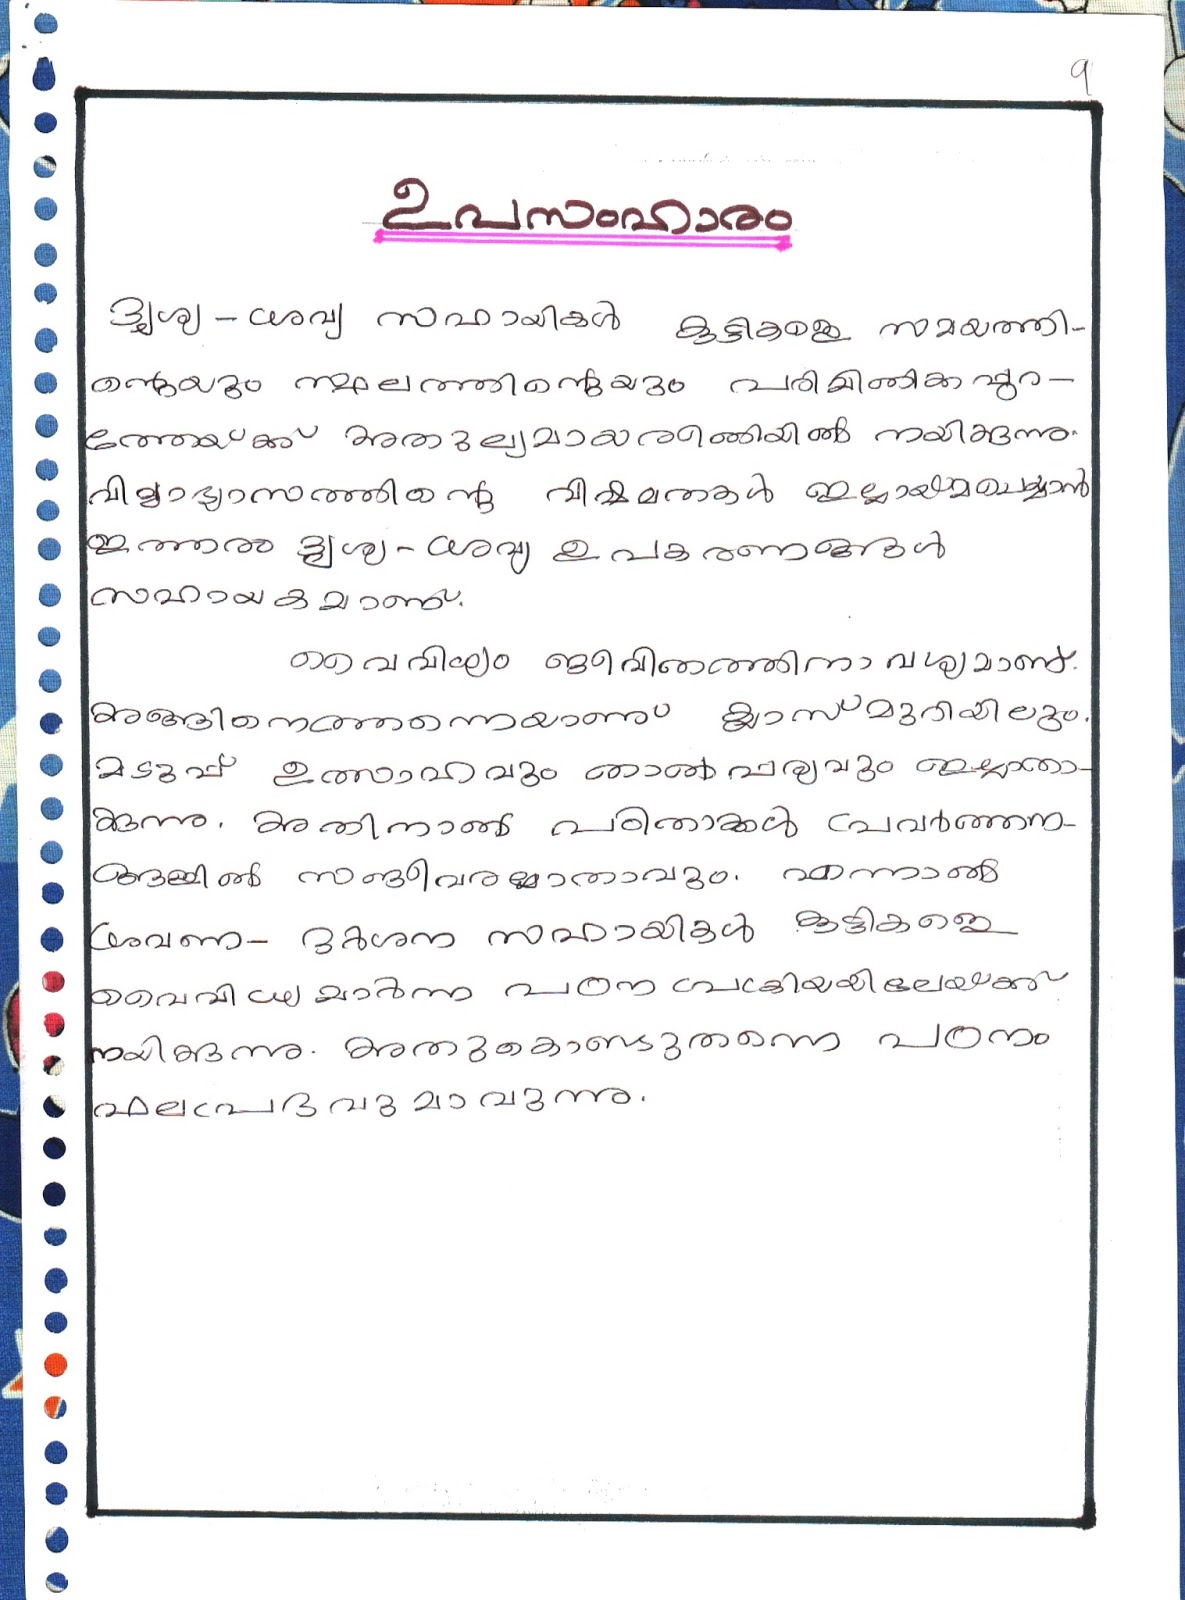 9
ഉപസംഹാരം
ദൃശ്യ - ശ്രവ്യ സഹായികൾ കുട്ടികളെ സമയത്തി-
ന്റെയും സ്ഥലത്തിന്റെയും പരിമിതിക്കപ്പുറ-
ത്തേയ്ക്ക് അതുല്യമായരീതിയിൽ നയിക്കുന്നു.
വിദ്യാഭ്യാസത്തിന്റെ വിഷമതകൾ ഇല്ലായ്മചെയ്യാൻ
ഇത്തരം ദൃശ്യ - ശ്രവ്യ ഉപകരണങ്ങൾ
സഹായകമാണ്.
വൈവിധ്യം ജീവിതത്തിനാവശ്യമാണ്.
അങ്ങിനെത്തന്നെയാണ് ക്ലാസ്മുറിയിലും.
മടുപ്പ് ഉത്സാഹവും താൽപര്യവും ഇല്ലാതാ-
ക്കുന്നു. അതിനാൽ പഠിതാക്കൾ പ്രവർത്തന-
ങ്ങളിൽ സജീവരല്ലാതാവും. എന്നാൽ
ശ്രവണ - ദർശന സഹായികൾ കുട്ടികളെ
വൈവിധ്യമാർന്ന പഠന പ്രക്രിയയിലേയ്ക്ക്
നയിക്കുന്നു. അതുകൊണ്ടുതന്നെ പഠനം
ഫലപ്രദവുമാവുന്നു.